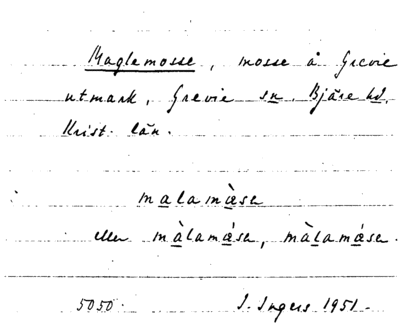 Maglemosse, mosse å Grevie
utmark, Grevie sn, Bjäre hd,
Krist. län.
malamæ̀sa
eller màlamǽsa, màlamǽsa.
5050. I. Ingers 1951.